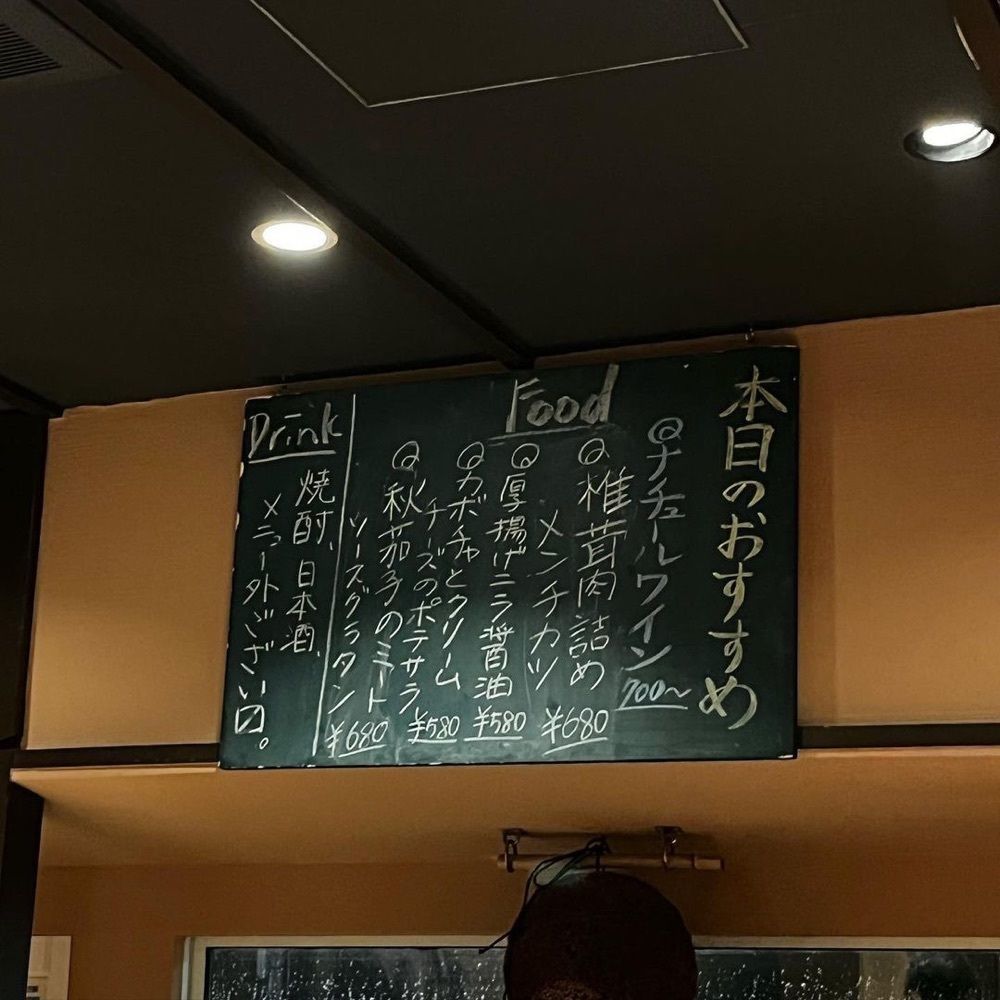 本日のおすすめ
ナチュールワイン
700〜
Food
椎茸肉詰め
メンチカツ
¥680
厚揚げニラ醤油
¥580
カボチャとクリーム
チーズのポテサラ
¥580
秋茄子のミート
ソースグラタン
¥680
Drink
焼酎、日本酒、
メニュー外ござい〼。